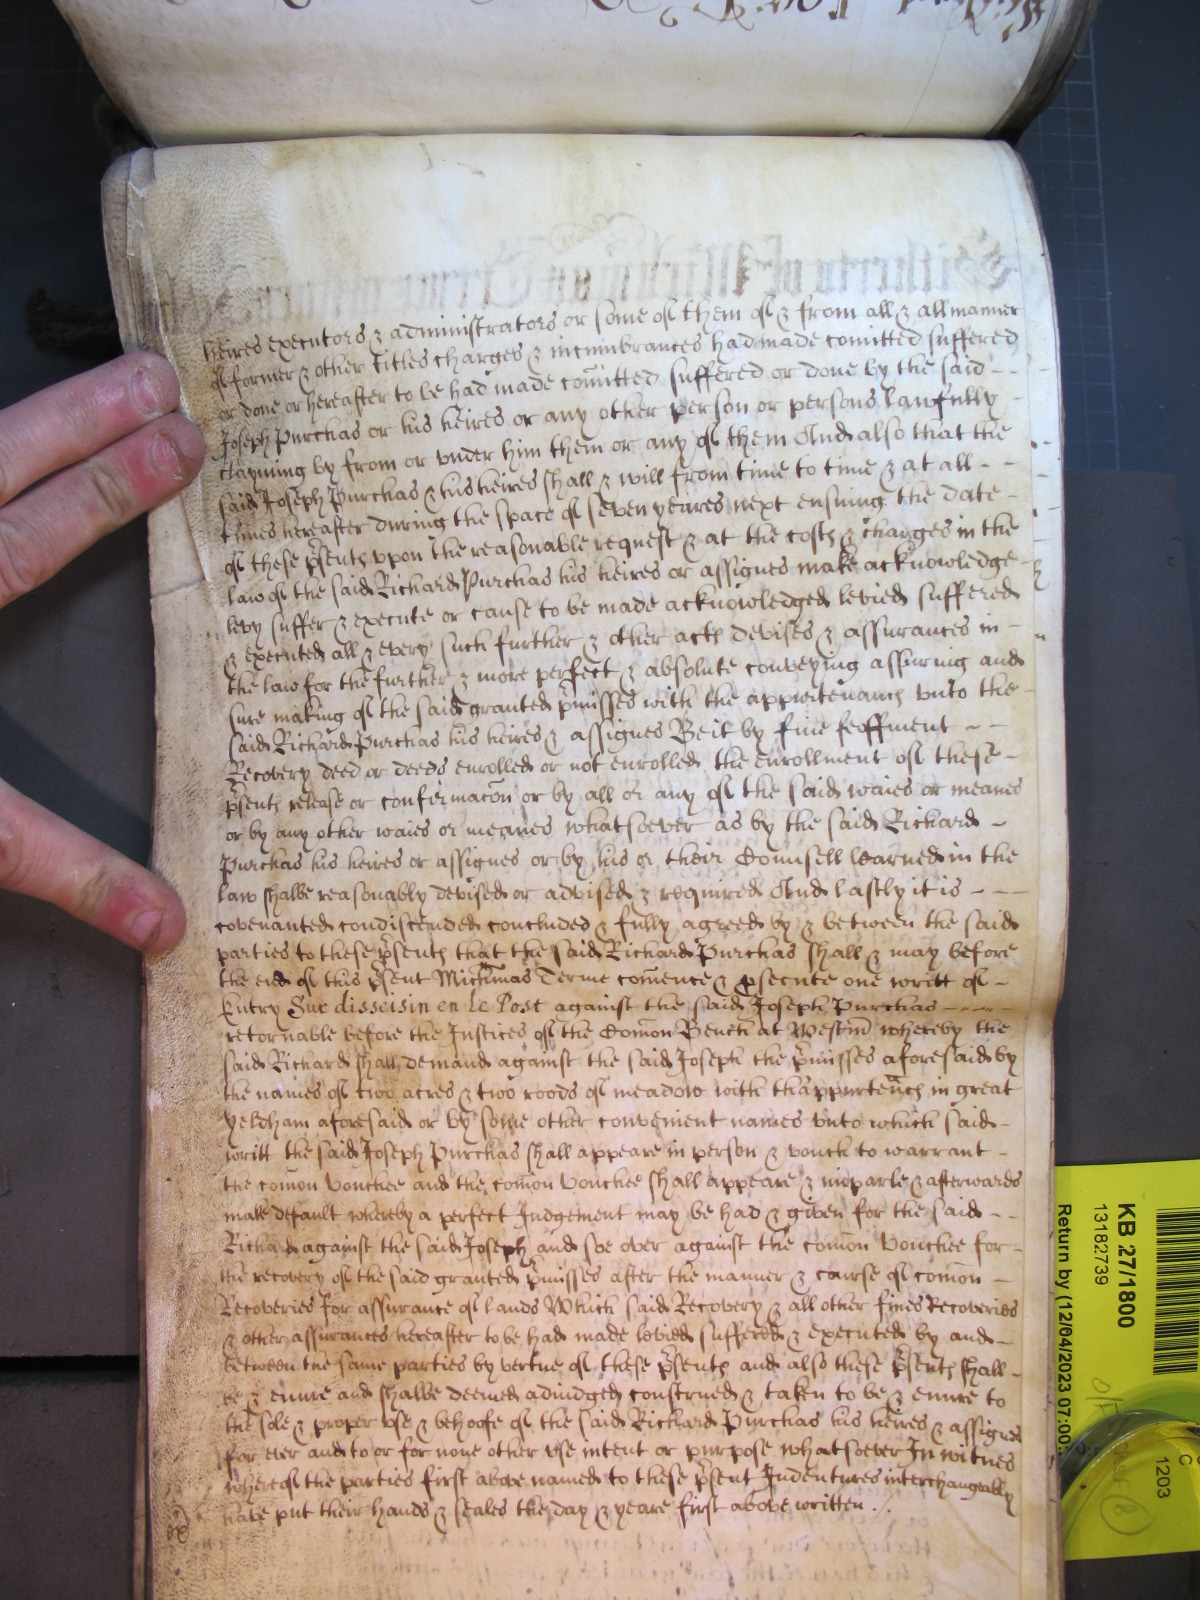 heires executors & administrators or some of them of & from all & all manner
of former & other titles charges & incumbrances had made comitted suffered
or done or hereafter to be had made comitted suffered or done by the said - -
Joseph Purchas or his heires or any other person or persons lawfully -
clayming by from or under him them or any of them And also that the
said Joseph Purchas & his heires shall & will from time to time & at all - -
times hereafter during the space of seven yeares next ensuing the date -
of these psents upon the reasonable request & at the costs & charges in the
law of the said Richard Purchas his heires or assignes make acknowledge -
levy suffer & execute or cause to be made acknowledged levied suffered
& executed all & every such further & other acts devises & assurances in -
the law for the further & more perfect & absolute conveying assuring and
sure making of the said granted pmisses with the appurtenancs unto the -
said Richard Purchas his heires & assignes Be it by fine feoffment - -
Recovery deed or deeds enrolled or not enrolled the enrollment of these -
psents release or confirmacon or by all or any of the said waies or meanes
or by any other waies or meanes whatsoever as by the said Richard -
Purchas his heires or assignes or by his or their Counsell learned in the
law shalbe reasonably devised or advised & required And lastly it is - - -
covenanted condiscended concluded & fully agreed by & betweene the said
parties to these psents that the said Richard Purchas shall & may before
the end of this psent Michmas Terme comence & psecute one writt of -
Entry Sur disseisin en le Post against the said Joseph Purchas - - - -
retornable before the Justices of the Comon Bench at Westm whereby the
said Richard shall demand against the said Joseph the pmisses aforesaid by
the names of two acres & two roods of meadow with thappurtencs in great
Yeldham aforesaid or by some other convenient names unto which said -
writt the said Joseph Purchas shall appeare in person & vouch to warrant -
the comon vouchee and the comon vouchee shall appeare & imparle & afterwards
make default whereby a perfect Judgement may be had & given for the said - -
Richard against the said Joseph and soe over against the comon vouchee for -
the recovery of the said granted pmisses after the manner & course of comon -
Recoveries for assurance of lands Which said Recovery & all other fines Recoveries
& other assurances hereafter to be had made levied suffered & executed by and -
betweene the same parties by vertue of these psents and also these psents shall -
be & enure and shalbe deemed adiudged construed & taken to be & enure to
the sole & proper use & behoofe of the said Richard Purchas his heires & assignes
for ever and to or for none other use intent or purpose whatsoever In witnes
whereof the parties first above named to these psent Indentures interchangeably
have put their hands & seales the day & yeare first above written .
KB 27/1800
13182739
Return by (12/04/2023 07:00:
C
1203